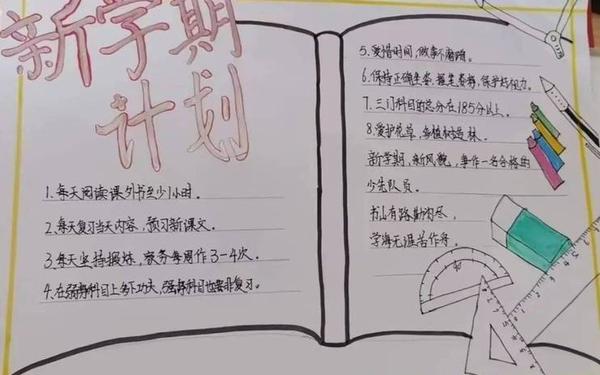 新学期
计划
1.每天阅读课外书至少1小时。
2.每天复习当天内容,预习新课文。
3.每天坚持锻炼,家务每周作3-4次。
4.在弱科目上多下功夫,强科目也要复习。
5.爱惜时间,做事不磨蹭。
6.保持正确坐姿,握笔姿势,保护好视力。
7.三门科目的总分在185分以上。
8.爱护花草,多植树造林。
新学期,新风貌,争作一名合格的
少先队员。
书山有路勤为径,
学海无涯苦作舟。